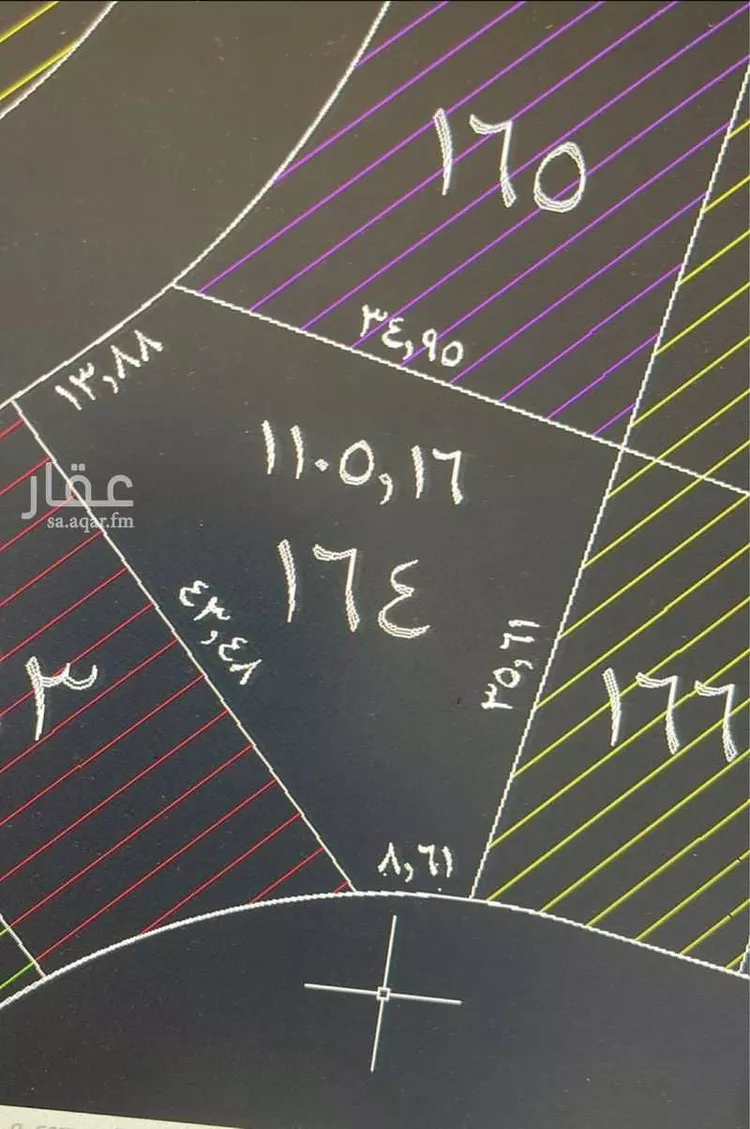 ١٦٥
٣٤,٩٥
١٣,٨٨
١١٠٥,١٦
عقار
sa.aqar.fm
١٦٤
٤٣,٤٨
٣٥,٦١
٣
١٦٦
٨,٦١